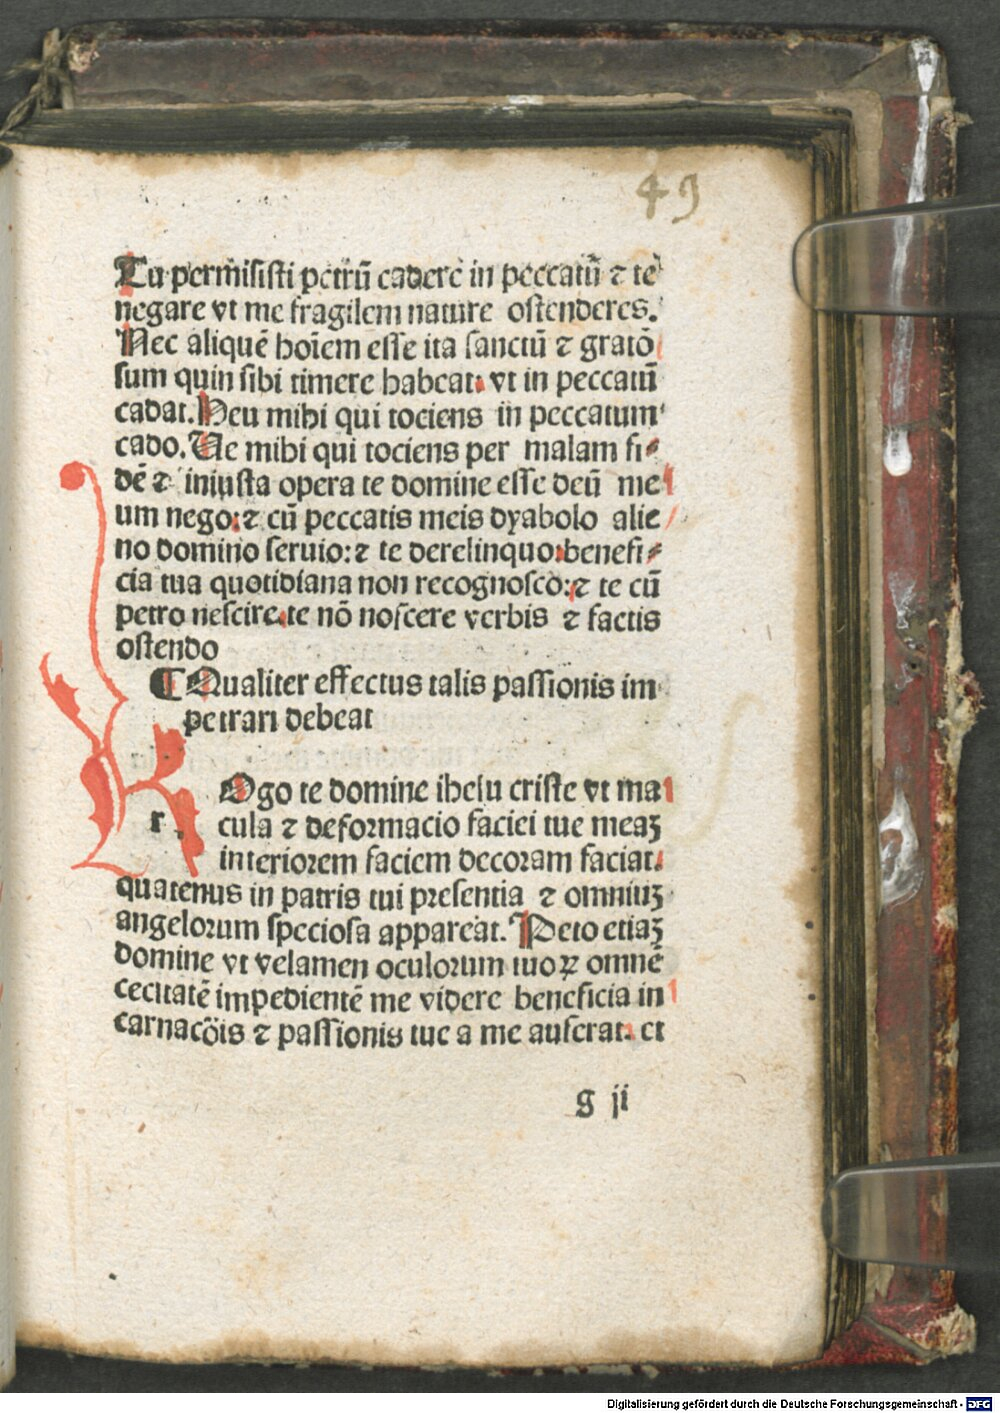 49
Tu permisisti petrū cadere in peccatū ⁊ te
negare vt me fragilem nature ostenderes.
Nec aliquē hoīem esse ita sanctū ⁊ gratō
sum quin sibi timere habeat: vt in peccatū
cadat. Heu mihi qui tociens in peccatum
cado. Ue mihi qui tociens per malam fi⸗
dē ⁊ iniusta opera te domine esse deū me
um nego: ⁊ cū peccatis meis dyabolo alie
no domino seruio: ⁊ te derelinquo: benefi⸗
cia tua quotidiana non recognosco: ⁊ te cū
petro nescire. te nō noscere verbis ⁊ factis
ostendo
¶ Qualiter effectus talis passionis im
petrari debeat
ROgo te domine ihesu criste vt ma
r. cula ⁊ deformacio faciei tue meaꝫ
interiorem faciem decoram faciat.
quatenus in patris tui presentia ⁊ omniuꝫ
angelorum speciosa appareat. Peto etiaꝫ
domine vt velamen oculorum tuoꝝ omnē
cecitatē impedientē me videre beneficia in
carnacōis ⁊ passionis tue a me auferat. et
g ij
Digitalisierung gefördert durch die Deutsche Forschungsgemeinschaft - DFG